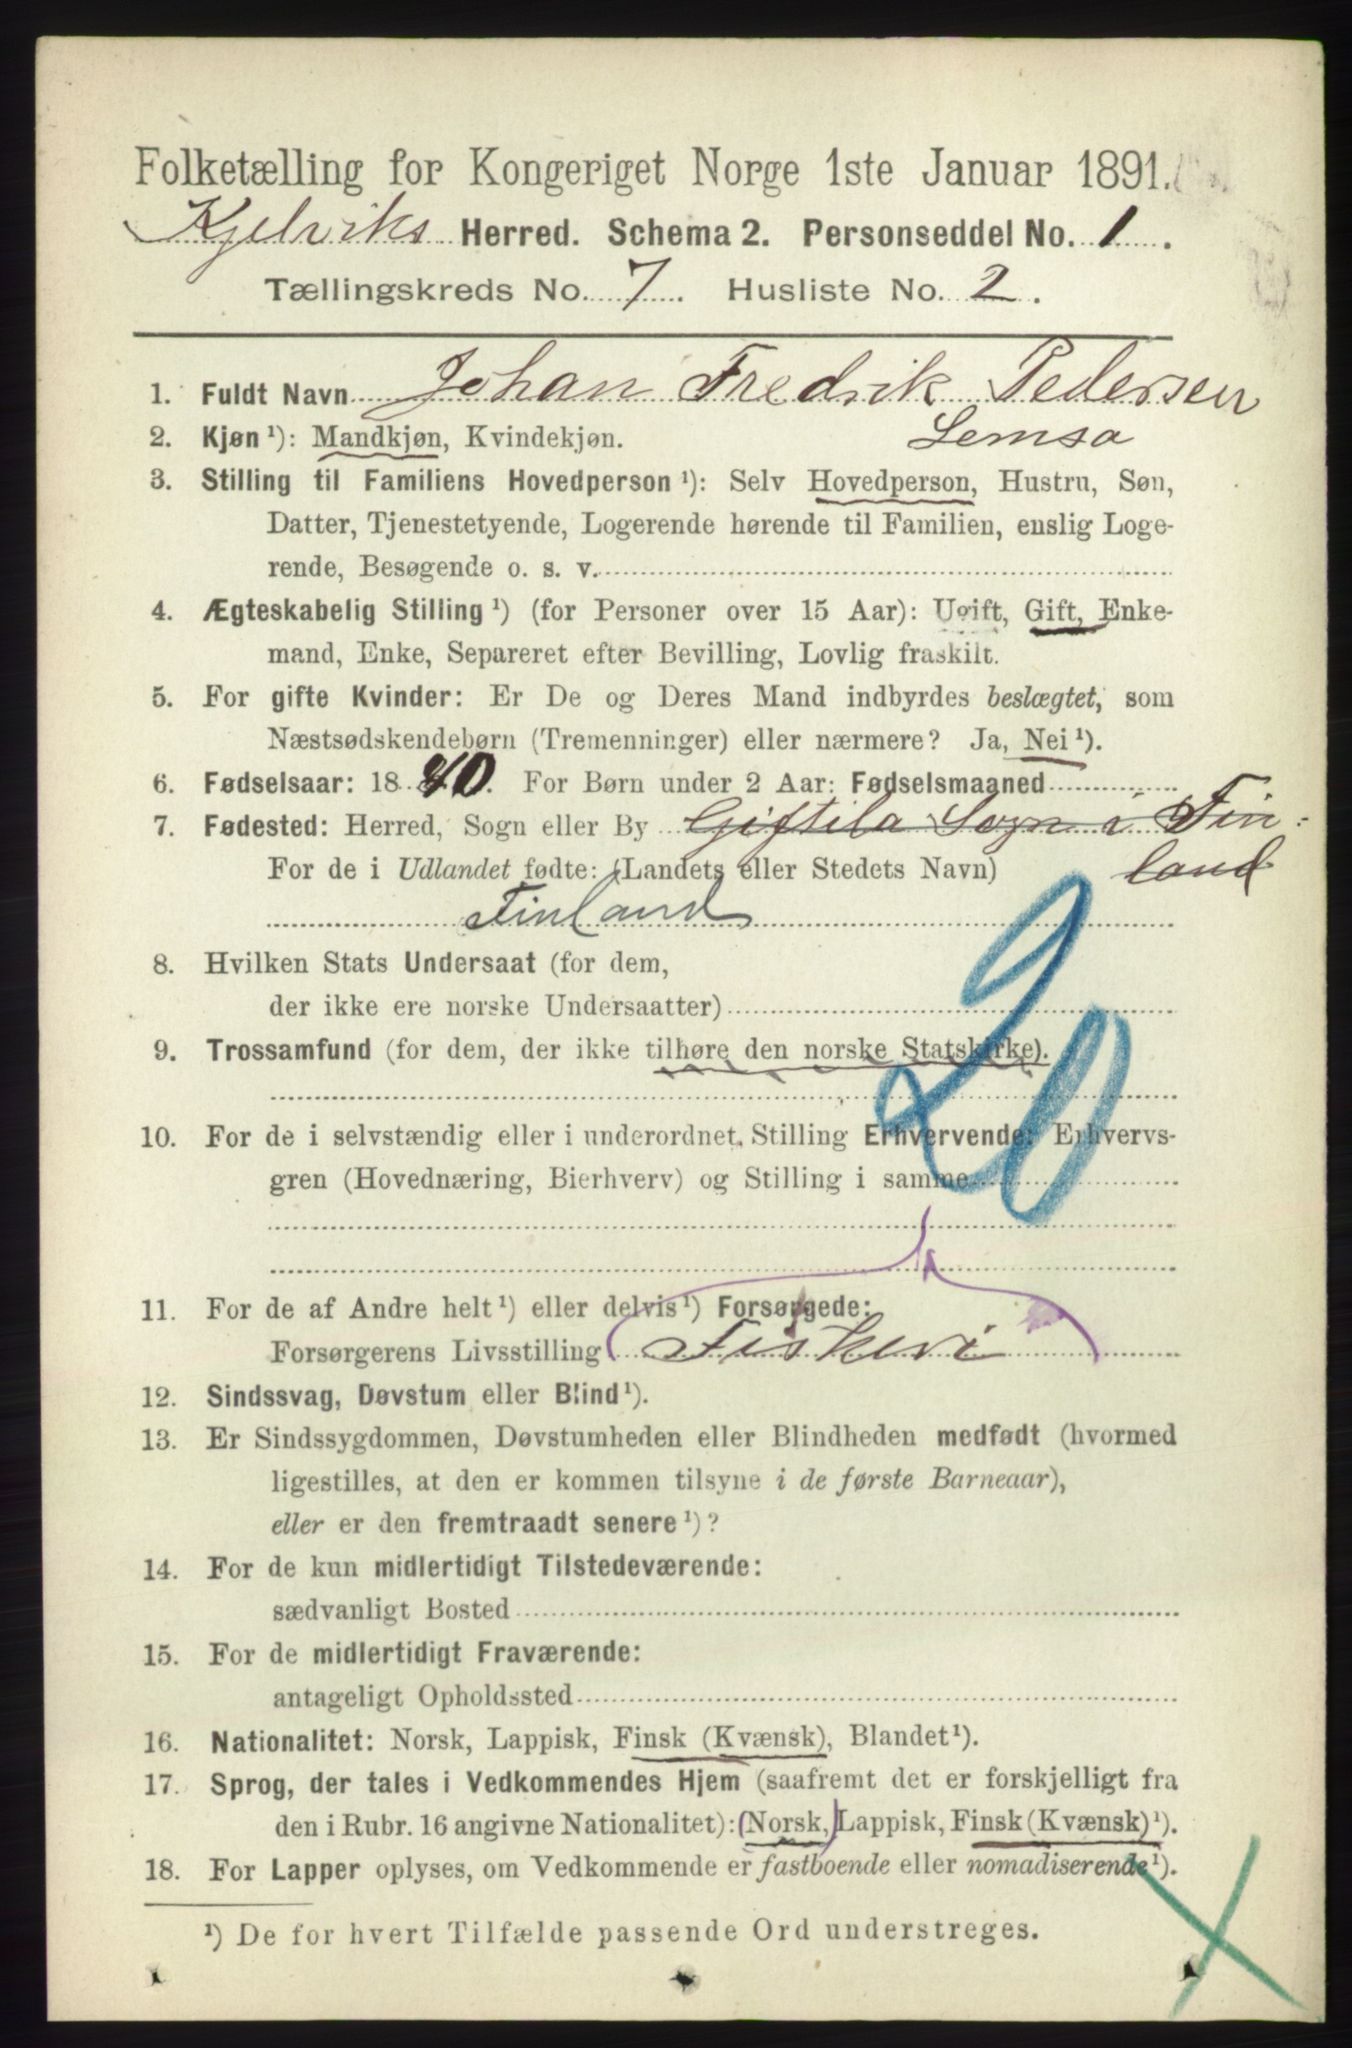 Folketælling for Kongeriget Norge 1ste Januar 1891.
Kjelviks Herred. Schema 2. Personseddel No. 1.
Tællingskreds No. 7. Husliste No. 2.
1. Fuldt Navn Johan Fredrik Pedersen
Lemsa
2. Kjøn ¹): Mandkjøn, Kvindekjøn.
3. Stilling til Familiens Hovedperson ¹): Selv Hovedperson, Hustru, Søn,
Datter, Tjenestetyende, Logerende hørende til Familien, enslig Loge-
rende, Besøgende o. s. v.
4. Ægteskabelig Stilling ¹) (for Personer over 15 Aar): Ugift, Gift, Enke-
mand, Enke, Separeret efter Bevilling, Lovlig fraskilt.
5. For gifte Kvinder: Er De og Deres Mand indbyrdes beslægtet, som
Næstsødskendebørn (Tremenninger) eller nærmere? Ja, Nei ¹).
6. Fødselsaar: 1840. For Børn under 2 Aar: Fødselsmaaned
7. Fødested: Herred, Sogn eller By Giftila Sogn i Fin-
For de i Udlandet fødte: (Landets eller Stedets Navn) land
Finland
8. Hvilken Stats Undersaat (for dem,
der ikke ere norske Undersaatter)
20
9. Trossamfund (for dem, der ikke tilhøre den norske Statskirke).
10. For de i selvstændig eller i underordnet Stilling Erhvervende: Erhvervs-
gren (Hovednæring, Bierhverv) og Stilling i samme
11. For de af Andre helt ¹) eller delvis ¹) Forsørgede:
Forsørgerens Livsstilling Fiskeri
12. Sindssvag, Døvstum eller Blind ¹).
13. Er Sindssygdommen, Døvstumheden eller Blindheden medfødt (hvormed
ligestilles, at den er kommen tilsyne i de første Barneaar),
eller er den fremtraadt senere ¹)?
14. For de kun midlertidigt Tilstedeværende:
sædvanligt Bosted
15. For de midlertidigt Fraværende:
antageligt Opholdssted
16. Nationalitet: Norsk, Lappisk, Finsk (Kvænsk), Blandet ¹).
17. Sprog, der tales i Vedkommendes Hjem (saafremt det er forskjelligt fra
den i Rubr. 16 angivne Nationalitet): (Norsk,) Lappisk, Finsk (Kvænsk) ¹).
18. For Lapper oplyses, om Vedkommende er fastboende eller nomadiserende ¹).
¹) De for hvert Tilfælde passende Ord understreges.